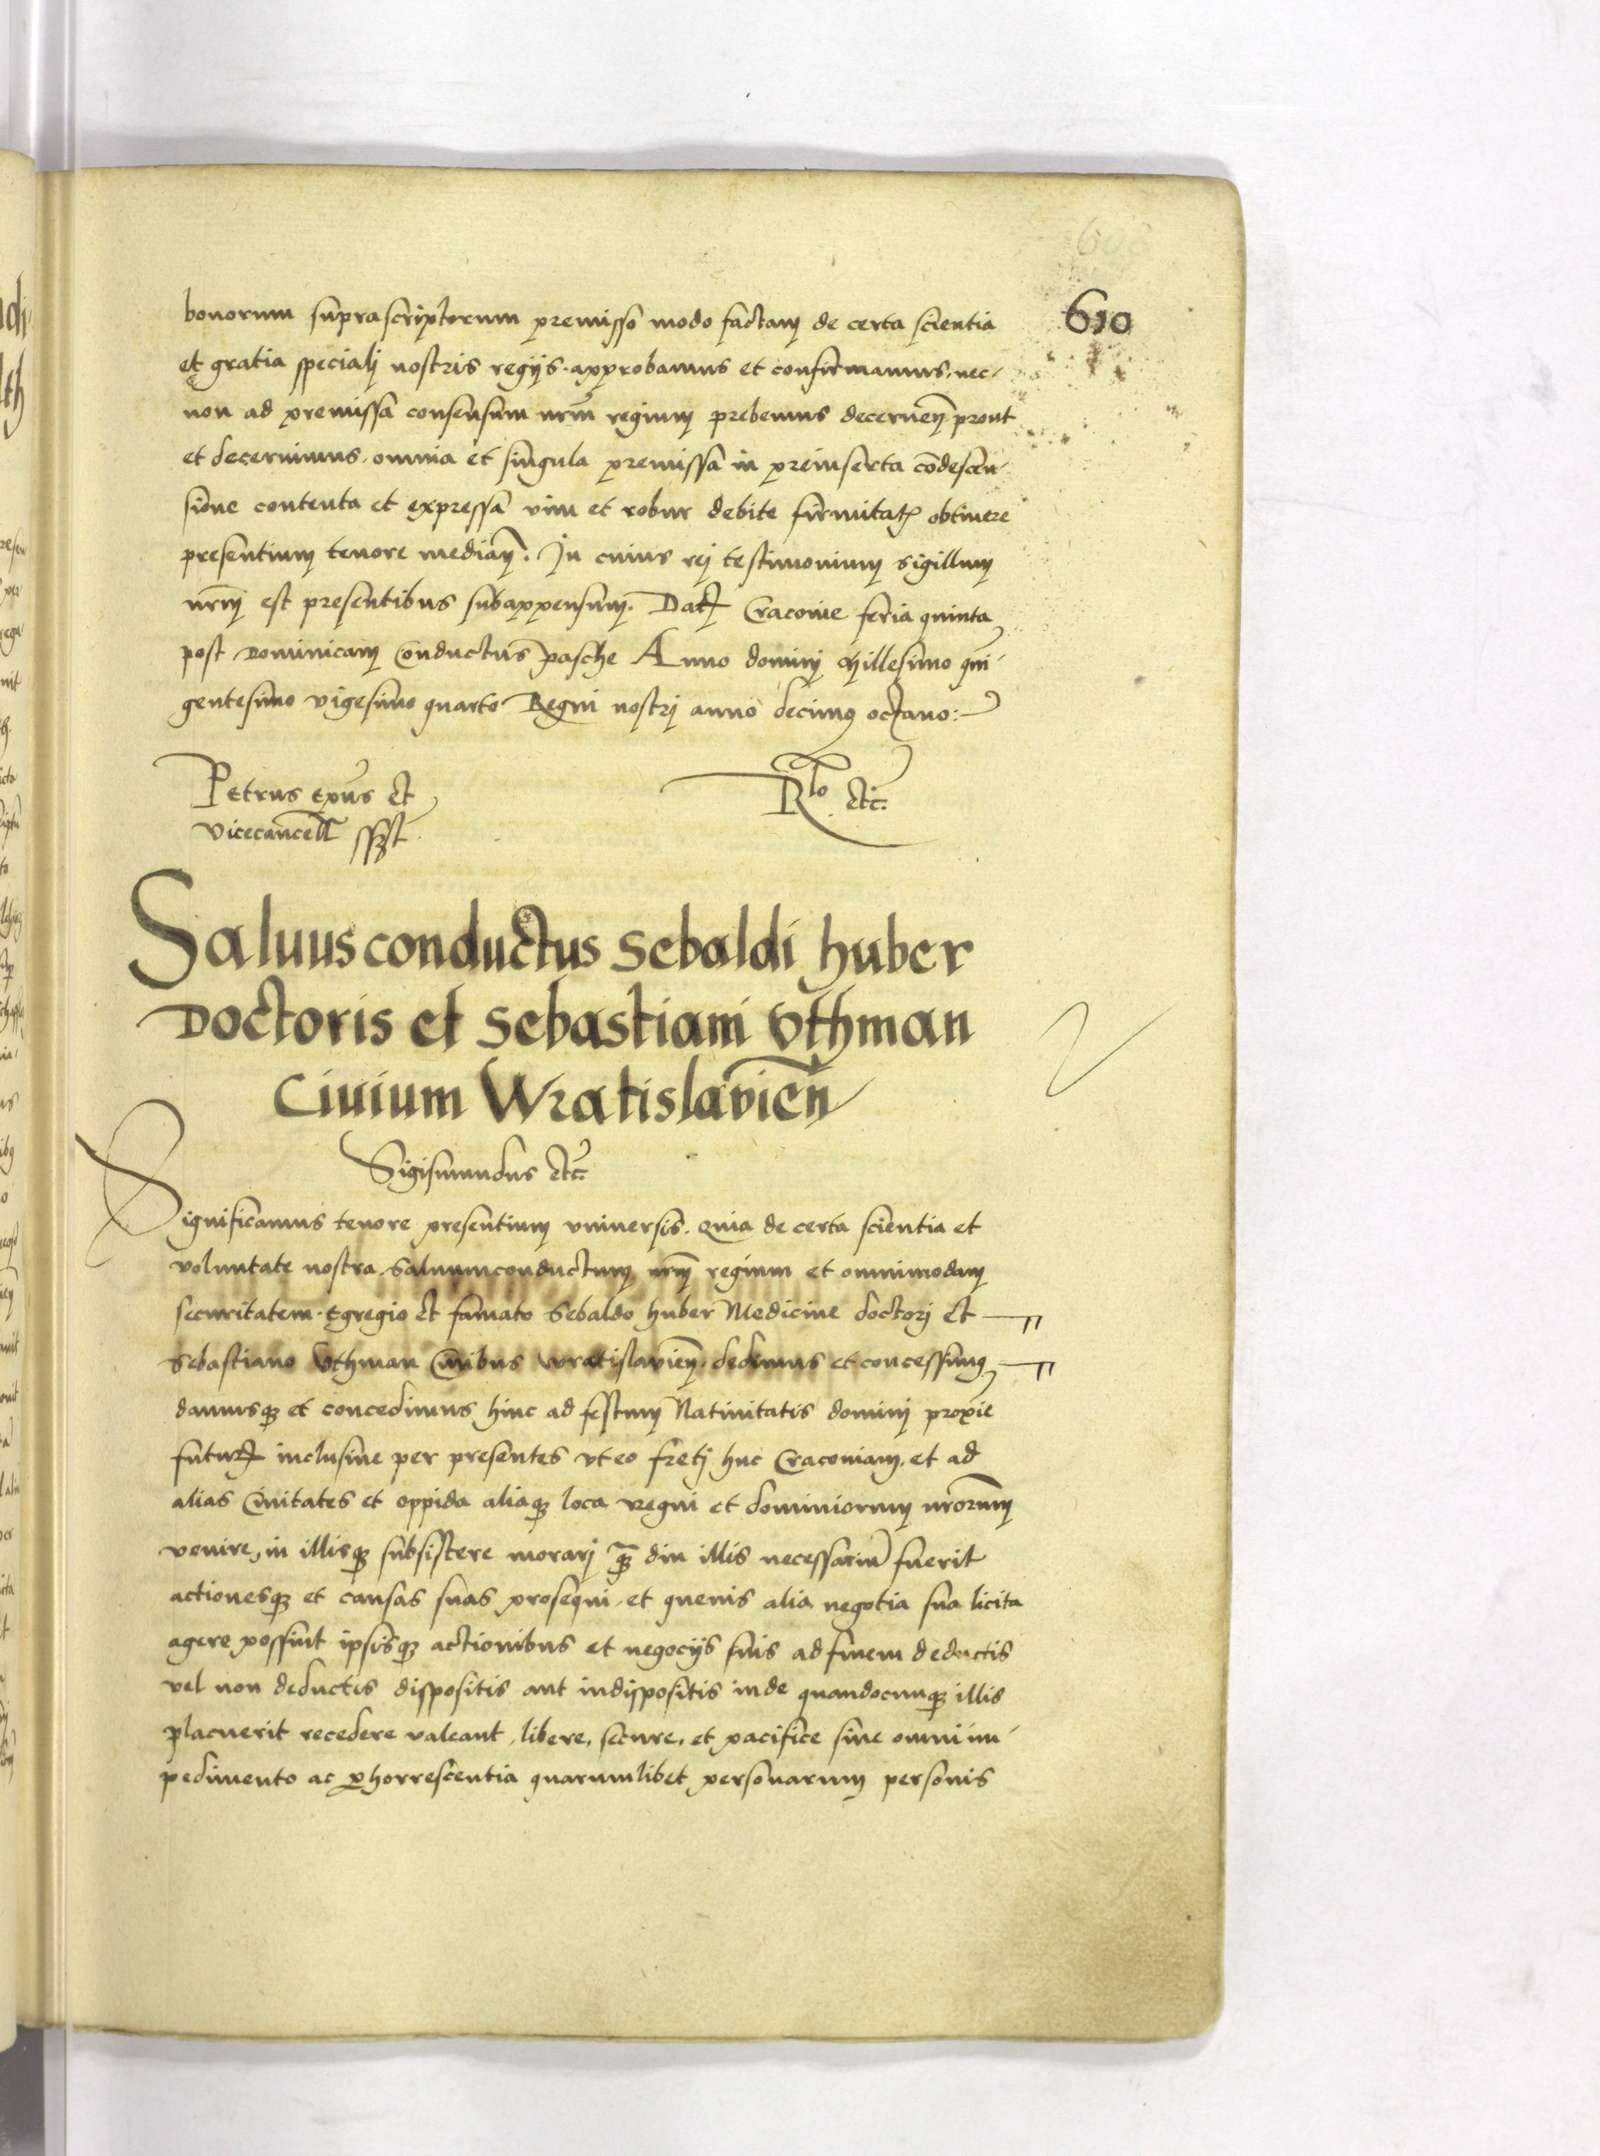 608
610
bonorum suprascriptorum premisso modo factam de certa scientia
et gratia specialj nostris regijs approbamus et confirmamus, nec-
non ad premissa consensum nr̃m regium prebemus decerneñ prout
et decernimus, omnia et singula premissa in preinserta cõdescen-
sione contenta et expressa vim et robur debite firmitat̃ obtinere
presentium tenore mediañ. In cuius rej testimonium sigillum
nr̃m est presentibus subappensum. Dat̃ Cracovie feria quinta
post Dominicam Conductus Pasche Anno dominj Millesimo quin-
gentesimo vigesimo quarto Regni nostrj anno decimo octavo:
Petrus ep̃us et
vicecancell̃ sszt
Rlo etc̃
Saluusconductus Sebaldi huber
Doctoris et Sebastiani Vthman
Ciuium Wratislavieñ
Sigismundus etc̃
Significamus tenore presentium vniuersis. Quia de certa scientia et
voluntate nostra, Saluumconductum nr̃m regium et omnimodam
securitatem. Egregio et famato Sebaldo huber Medicine doctorj et
Sebastiano Vthman Ciuibus wratislavieñ. dedimus et concessimus
damusq3 et concedimus hinc ad festum Natiuitatis dominj proxie
futur̃ inclusiue per presentes vt eo fretj huc Cracoviam, et ad
alias Ciuitates et oppida aliaq3 loca regni et dominiorum nr̃orum
venire, in illisq3 subsistere morarj q̃3 diu illis necessariũ fuerit
actionesq3 et causas suas prosequi, et queuis alia negotia sua licita
agere possint ipsisq3 actionibus et negocijs suis ad finem deductis
vel non deductis dispositis aut indispositis inde quandocunq3 illis
placuerit recedere valeant, libere, secure, et pacifice sine omni im-
pedimento ac perhorrescentia quarumlibet personarum personis